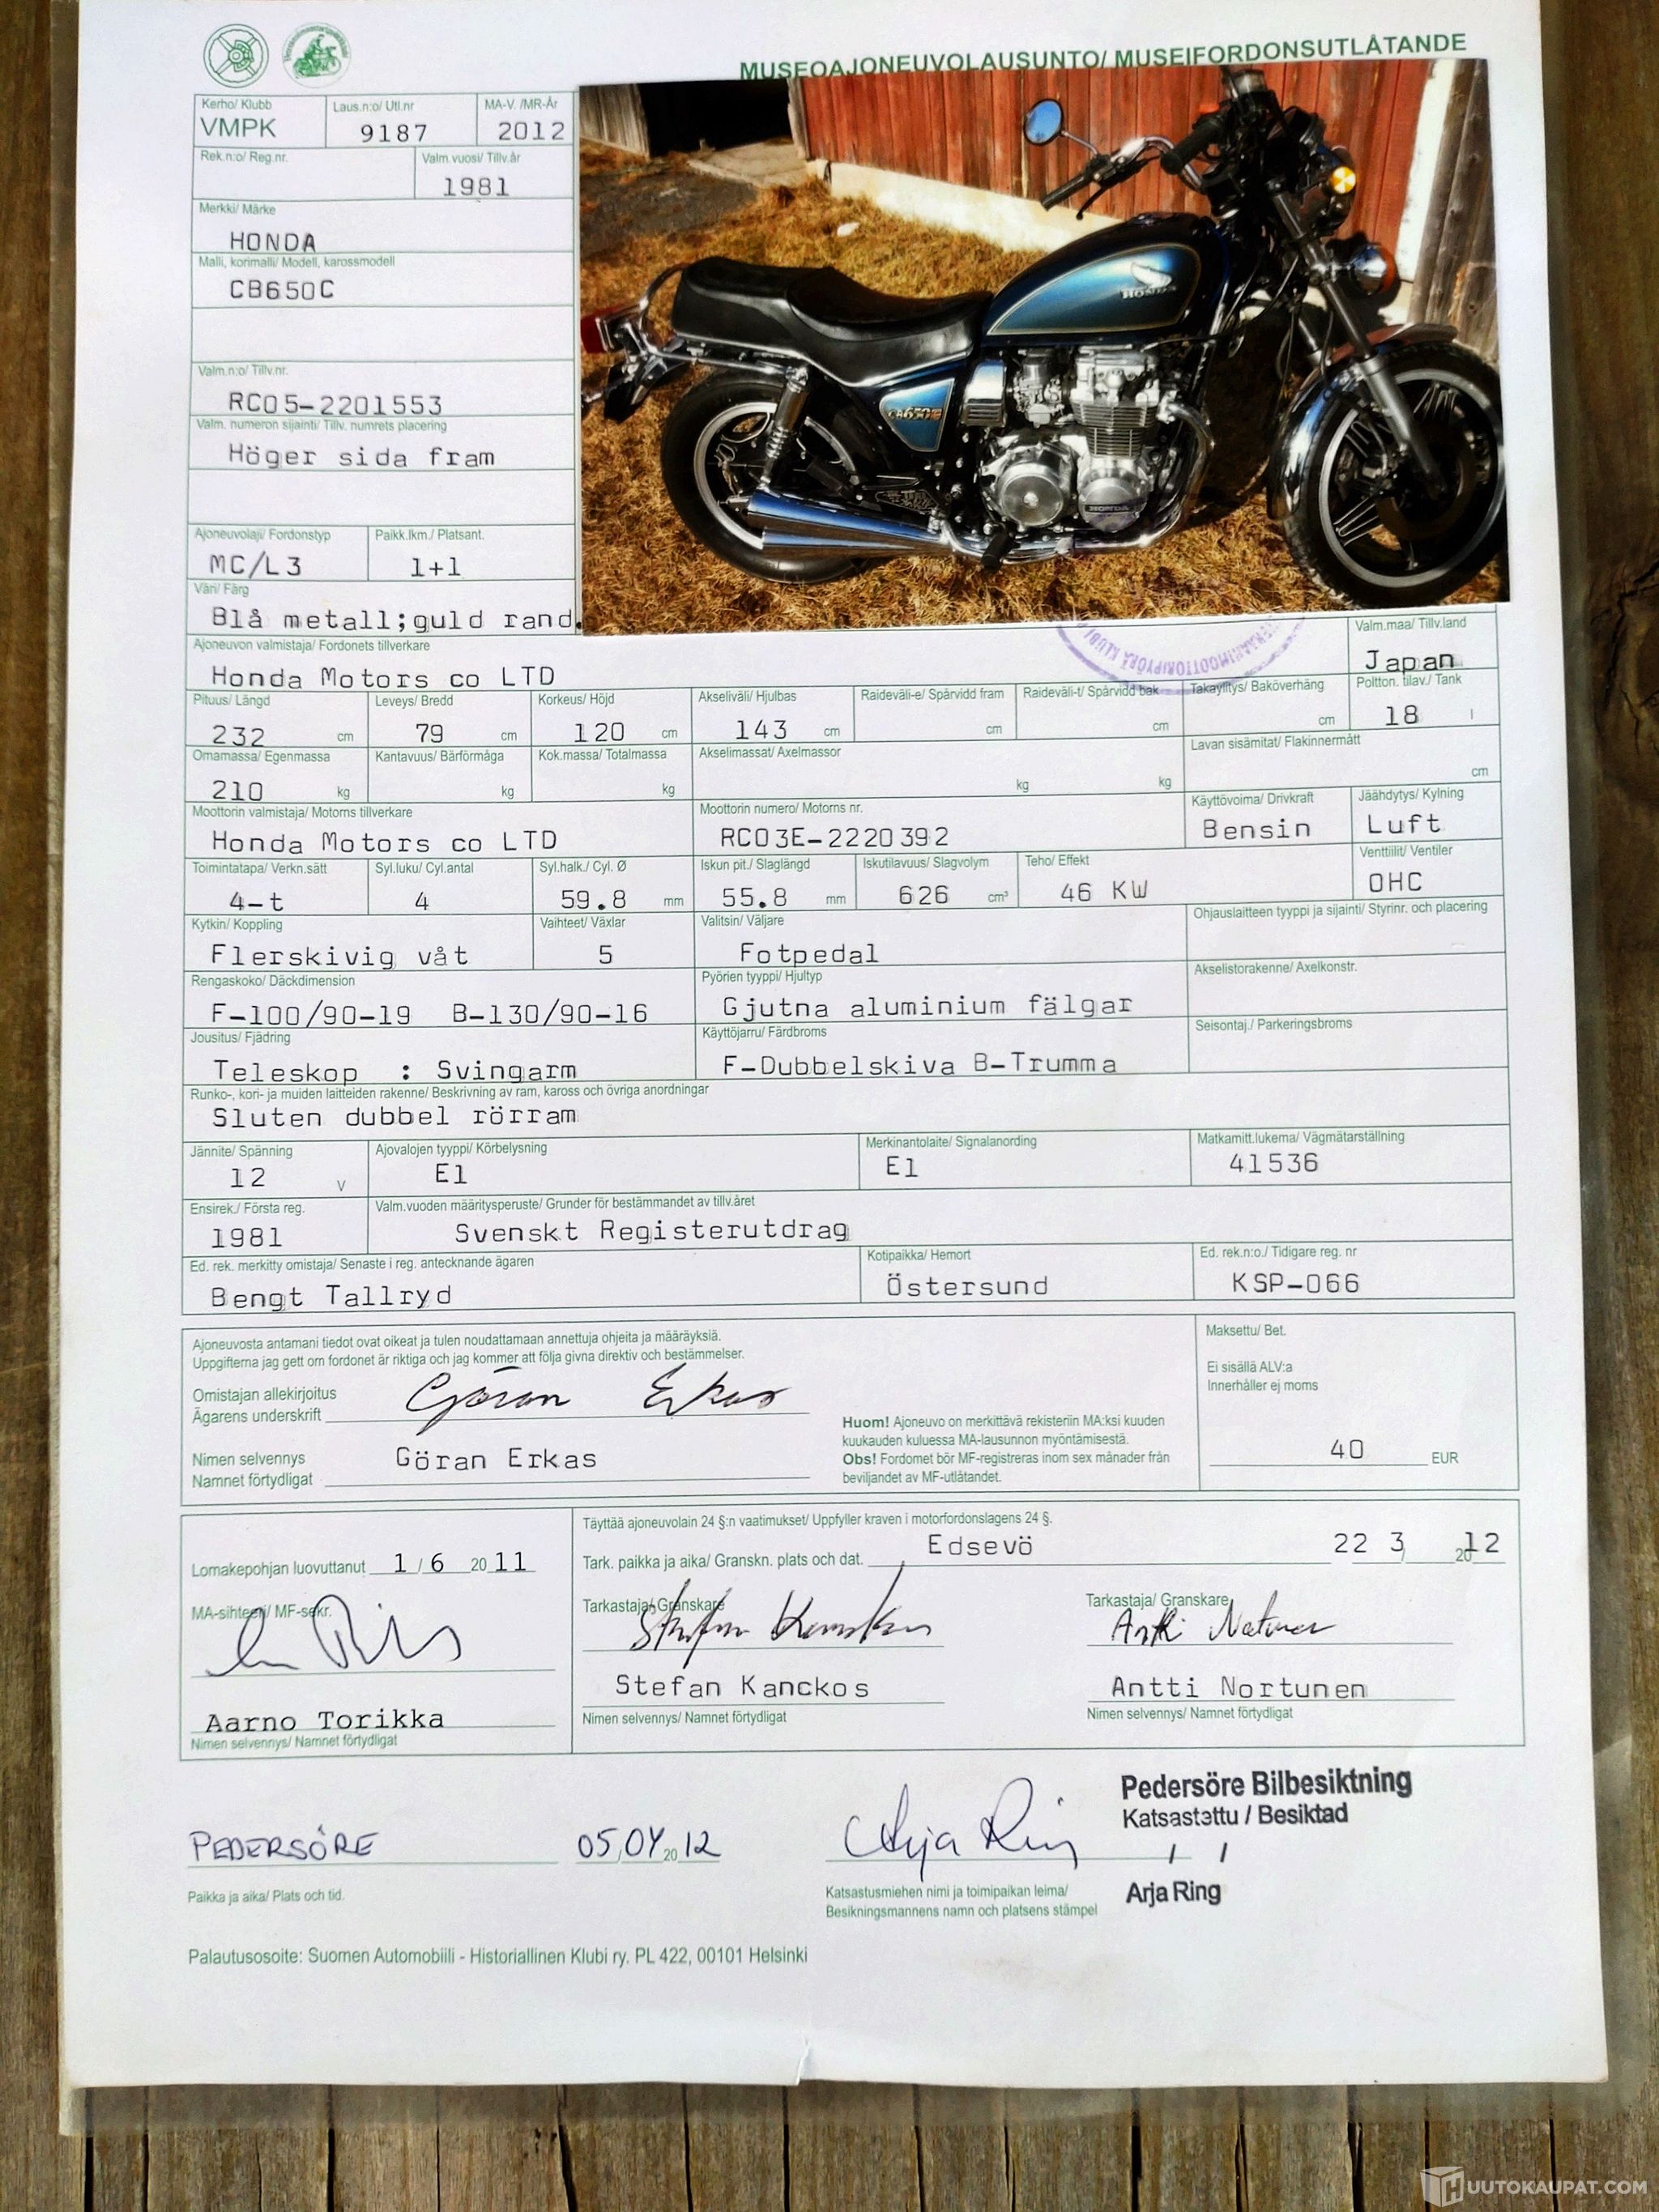 MUSEOAJONEUVOLAUSUNTO/ MUSEIFORDONSUTLÅTANDE
Kerho/ Klubb Laus.n:o/ Utl.nr MA-V. /MR-År
VMPK 9187 2012
Rek.n:o/ Reg.nr. Valm.vuosi/ Tillv.år
1981
Merkki/ Märke
HONDA
Malli, korimalli/ Modell, karossmodell
CB650C
Valm.n:o/ Tillv.nr.
RC05-2201553
Valm. numeron sijainti/ Tillv. numrets placering
Höger sida fram
Ajoneuvolaji/ Fordonstyp Paikk.lkm./ Platsant.
MC/L3 1+1
Väri/ Färg
Blå metall;guld rand.
HONDA
CB650
HONDA
Ajoneuvon valmistaja/ Fordonets tillverkare Valm.maa/ Tillv.land
Honda Motors co LTD Japan
Pituus/ Längd Leveys/ Bredd Korkeus/ Höjd Akseliväli/ Hjulbas Raideväli-e/ Spårvidd fram Raideväli-t/ Spårvidd bak Takaylitys/ Baköverhäng Poltton. tilav./ Tank
232 cm 79 cm 120 cm 143 cm cm cm cm 18 l
Omamassa/ Egenmassa Kantavuus/ Bärförmåga Kok.massa/ Totalmassa Akselimassat/ Axelmassor Lavan sisämitat/ Flakinnermått
210 kg kg kg kg kg cm
Moottorin valmistaja/ Motorns tillverkare Moottorin numero/ Motorns nr. Käyttövoima/ Drivkraft Jäähdytys/ Kylning
Honda Motors co LTD RC03E-2220392 Bensin Luft
Toimintatapa/ Verkn.sätt Syl.luku/ Cyl.antal Syl.halk./ Cyl. Ø Iskun pit./ Slaglängd Iskutilavuus/ Slagvolym Teho/ Effekt Venttiilit/ Ventiler
4-t 4 59.8 mm 55.8 mm 626 cm³ 46 KW OHC
Kytkin/ Koppling Vaihteet/ Växlar Valitsin/ Väljare Ohjauslaitteen tyyppi ja sijainti/ Styrinr. och placering
Flerskivig våt 5 Fotpedal
Rengaskoko/ Däckdimension Pyörien tyyppi/ Hjultyp Akselistorakenne/ Axelkonstr.
F-100/90-19 B-130/90-16 Gjutna aluminium fälgar
Jousitus/ Fjädring Käyttöjarru/ Färdbroms Seisontaj./ Parkeringsbroms
Teleskop : Svingarm F-Dubbelskiva B-Trumma
Runko-, kori- ja muiden laitteiden rakenne/ Beskrivning av ram, kaross och övriga anordningar
Sluten dubbel rörram
Jännite/ Spänning Ajovalojen tyyppi/ Körbelysning Merkinantolaite/ Signalanording Matkamitt.lukema/ Vägmätarställning
12 V El El 41536
Ensirek./ Första reg. Valm.vuoden määritysperuste/ Grunder för bestämmandet av tillv.året
1981 Svenskt Registerutdrag
Ed. rek. merkitty omistaja/ Senaste i reg. antecknande ägaren Kotipaikka/ Hemort Ed. rek.n:o./ Tidigare reg. nr
Bengt Tallryd Östersund KSP-066
Ajoneuvosta antamani tiedot ovat oikeat ja tulen noudattamaan annettuja ohjeita ja määräyksiä.
Uppgifterna jag gett om fordonet är riktiga och jag kommer att följa givna direktiv och bestämmelser.
Maksettu/ Bet.
Ei sisällä ALV:a
Innerhåller ej moms
40 EUR
Omistajan allekirjoitus
Ägarens underskrift Göran Erkas
Nimen selvennys
Namnet förtydligat Göran Erkas
Huom! Ajoneuvo on merkittävä rekisteriin MA:ksi kuuden
kuukauden kuluessa MA-lausunnon myöntämisestä.
Obs! Fordomet bör MF-registreras inom sex månader från
beviljandet av MF-utlåtandet.
Täyttää ajoneuvolain 24 §:n vaatimukset/ Uppfyller kraven i motorfordonslagens 24 §.
Lomakepohjan luovuttanut 1 / 6 2011
Tark. paikka ja aika/ Granskn. plats och dat. Edsevö 22 3 2012
MA-sihteeri/ MF-sekr. Tarkastaja/ Granskare Tarkastaja/ Granskare
Aarno Torikka Stefan Kanckos Antti Nortunen
Nimen selvennys/ Namnet förtydligat Nimen selvennys/ Namnet förtydligat Nimen selvennys/ Namnet förtydligat
Pedersöre Bilbesiktning
Katsastettu / Besiktad
PEDERSÖRE 05,04 2012 Arja Ring
/ /
Arja Ring
Paikka ja aika/ Plats och tid.
Katsastusmiehen nimi ja toimipaikan leima/
Besikningsmannens namn och platsens stämpel
Palautusosoite: Suomen Automobiili - Historiallinen Klubi ry. PL 422, 00101 Helsinki
HUUTOKAUPAT.COM